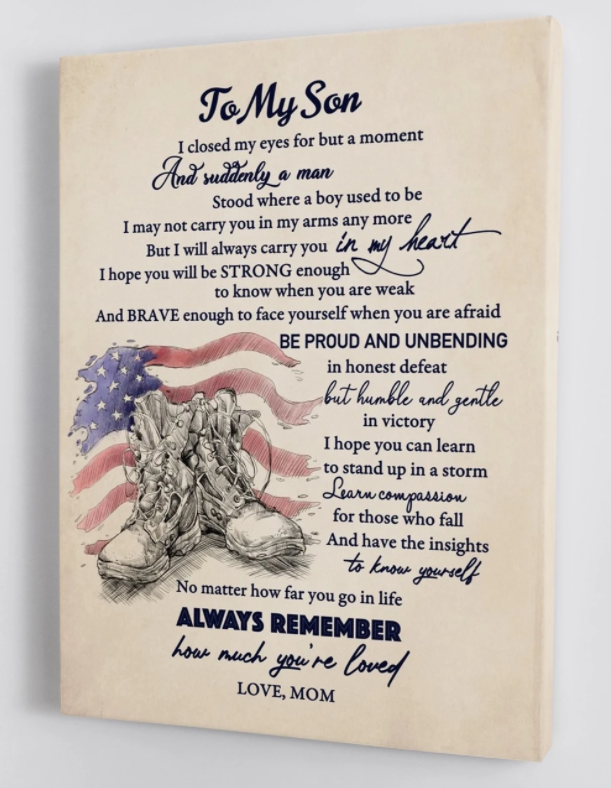 To My Son
I closed my eyes for but a moment
And suddenly a man
Stood where a boy used to be
I may not carry you in my arms any more
But I will always carry you in my heart
I hope you will be STRONG enough
to know when you are weak
And BRAVE enough to face yourself when you are afraid
BE PROUD AND UNBENDING
in honest defeat
but humble and gentle
in victory
I hope you can learn
to stand up in a storm
Learn compassion
for those who fall
And have the insights
to know yourself
No matter how far you go in life
ALWAYS REMEMBER
how much you're loved
LOVE, MOM